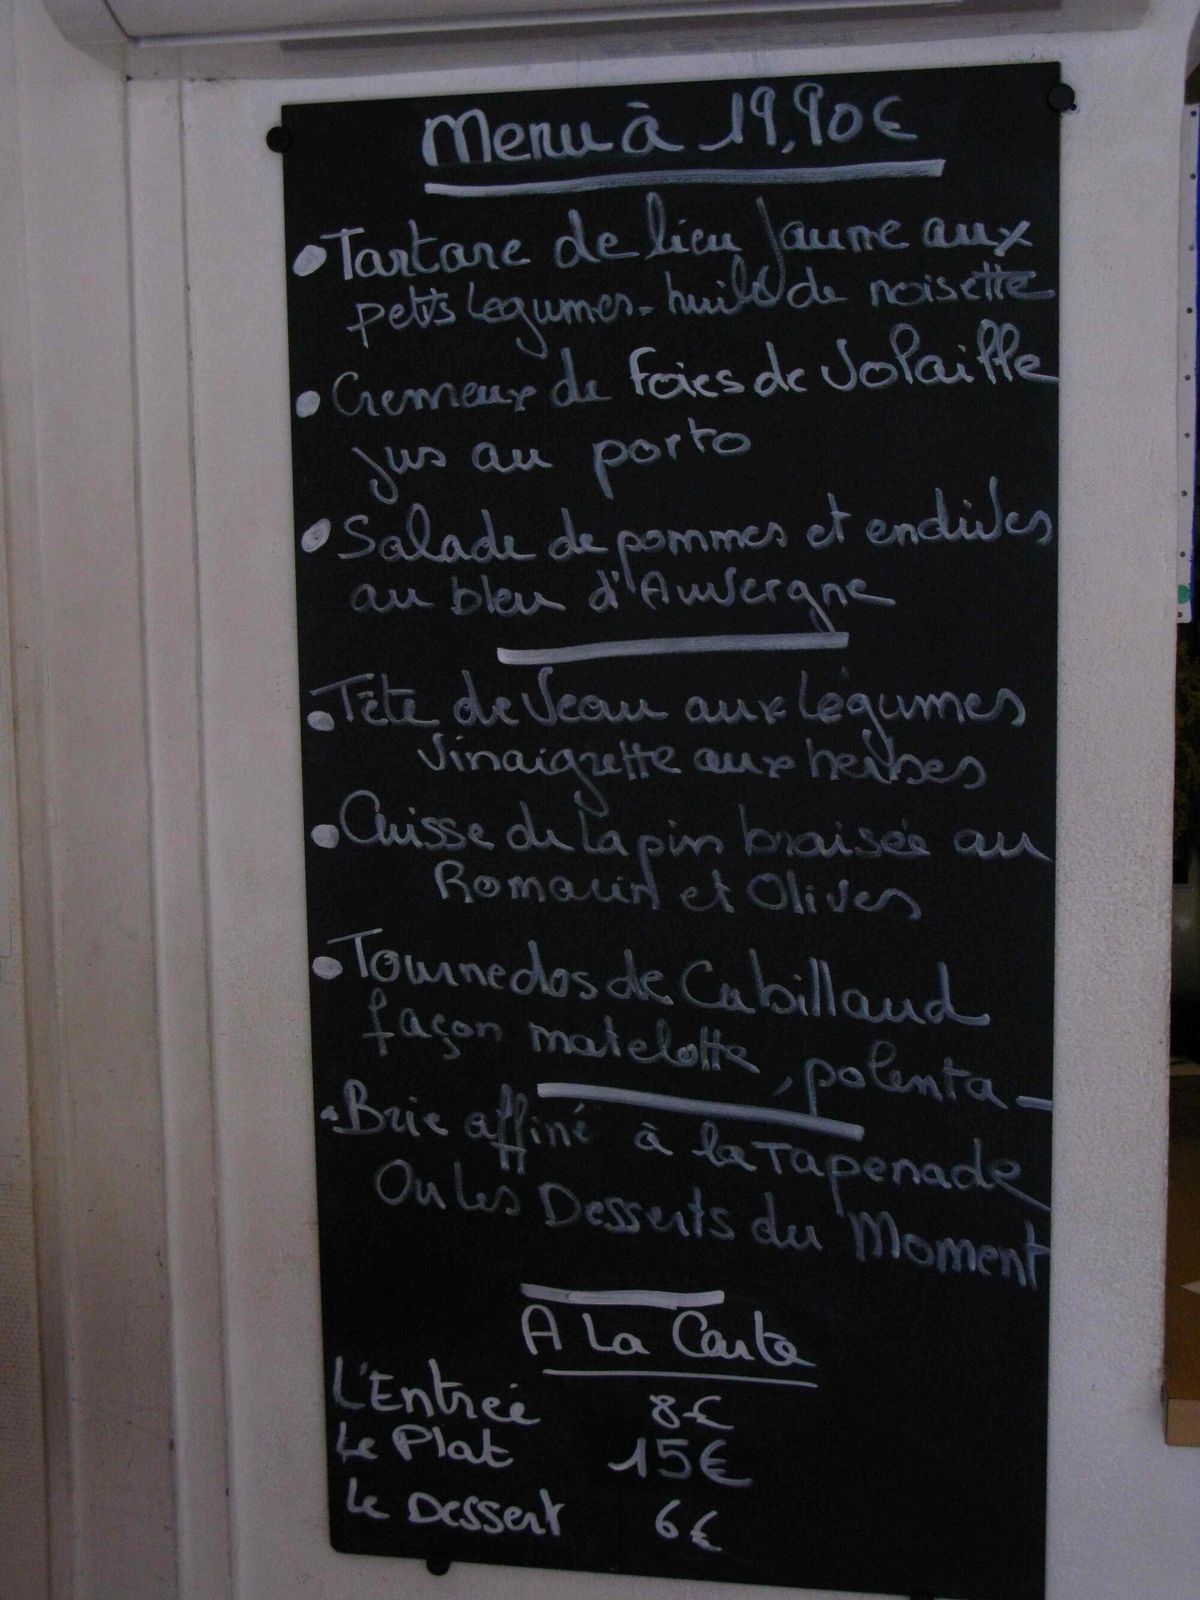 Menu à 19,90€
• Tartare de lieu Jaune aux
petits Legumes - huile de noisette
• Cremeux de Foies de Volaille
jus au porto
• Salade de pommes et endives
au bleu d'Auvergne
• Tête de Veau aux Légumes
Vinaigrette aux herbes
• Cuisse de Lapin braisée au
Romarin et Olives
• Tournedos de Cabillaud
façon matelotte, polenta -
• Brie affiné à la Tapenade
Ou Les Desserts du Moment
A La Carte
L'Entrée 8€
Le Plat 15€
Le Dessert 6€